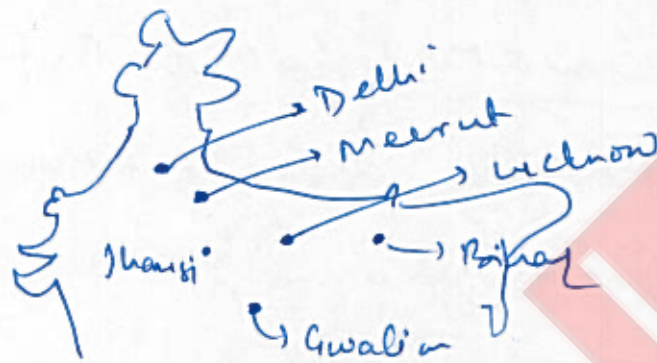 Delhi
Meerut
Lucknow
Jhansi
Bihar
Gwalior